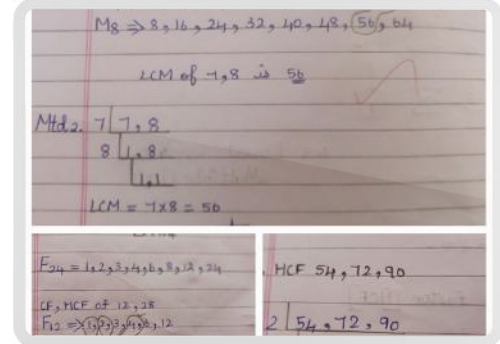 M8 ⇒ 8, 16, 24, 32, 40, 48, 56, 64
LCM of 7, 8 is 56
Mtd 2. 7 | 7, 8
8 | 1, 8
1, 1
LCM = 7×8 = 56
F24 = 1, 2, 3, 4, 6, 8, 12, 24
CF, HCF of 12, 28
F12 ⇒ 1, 2, 3, 4, 6, 12
HCF 54, 72, 90
2 | 54, 72, 90